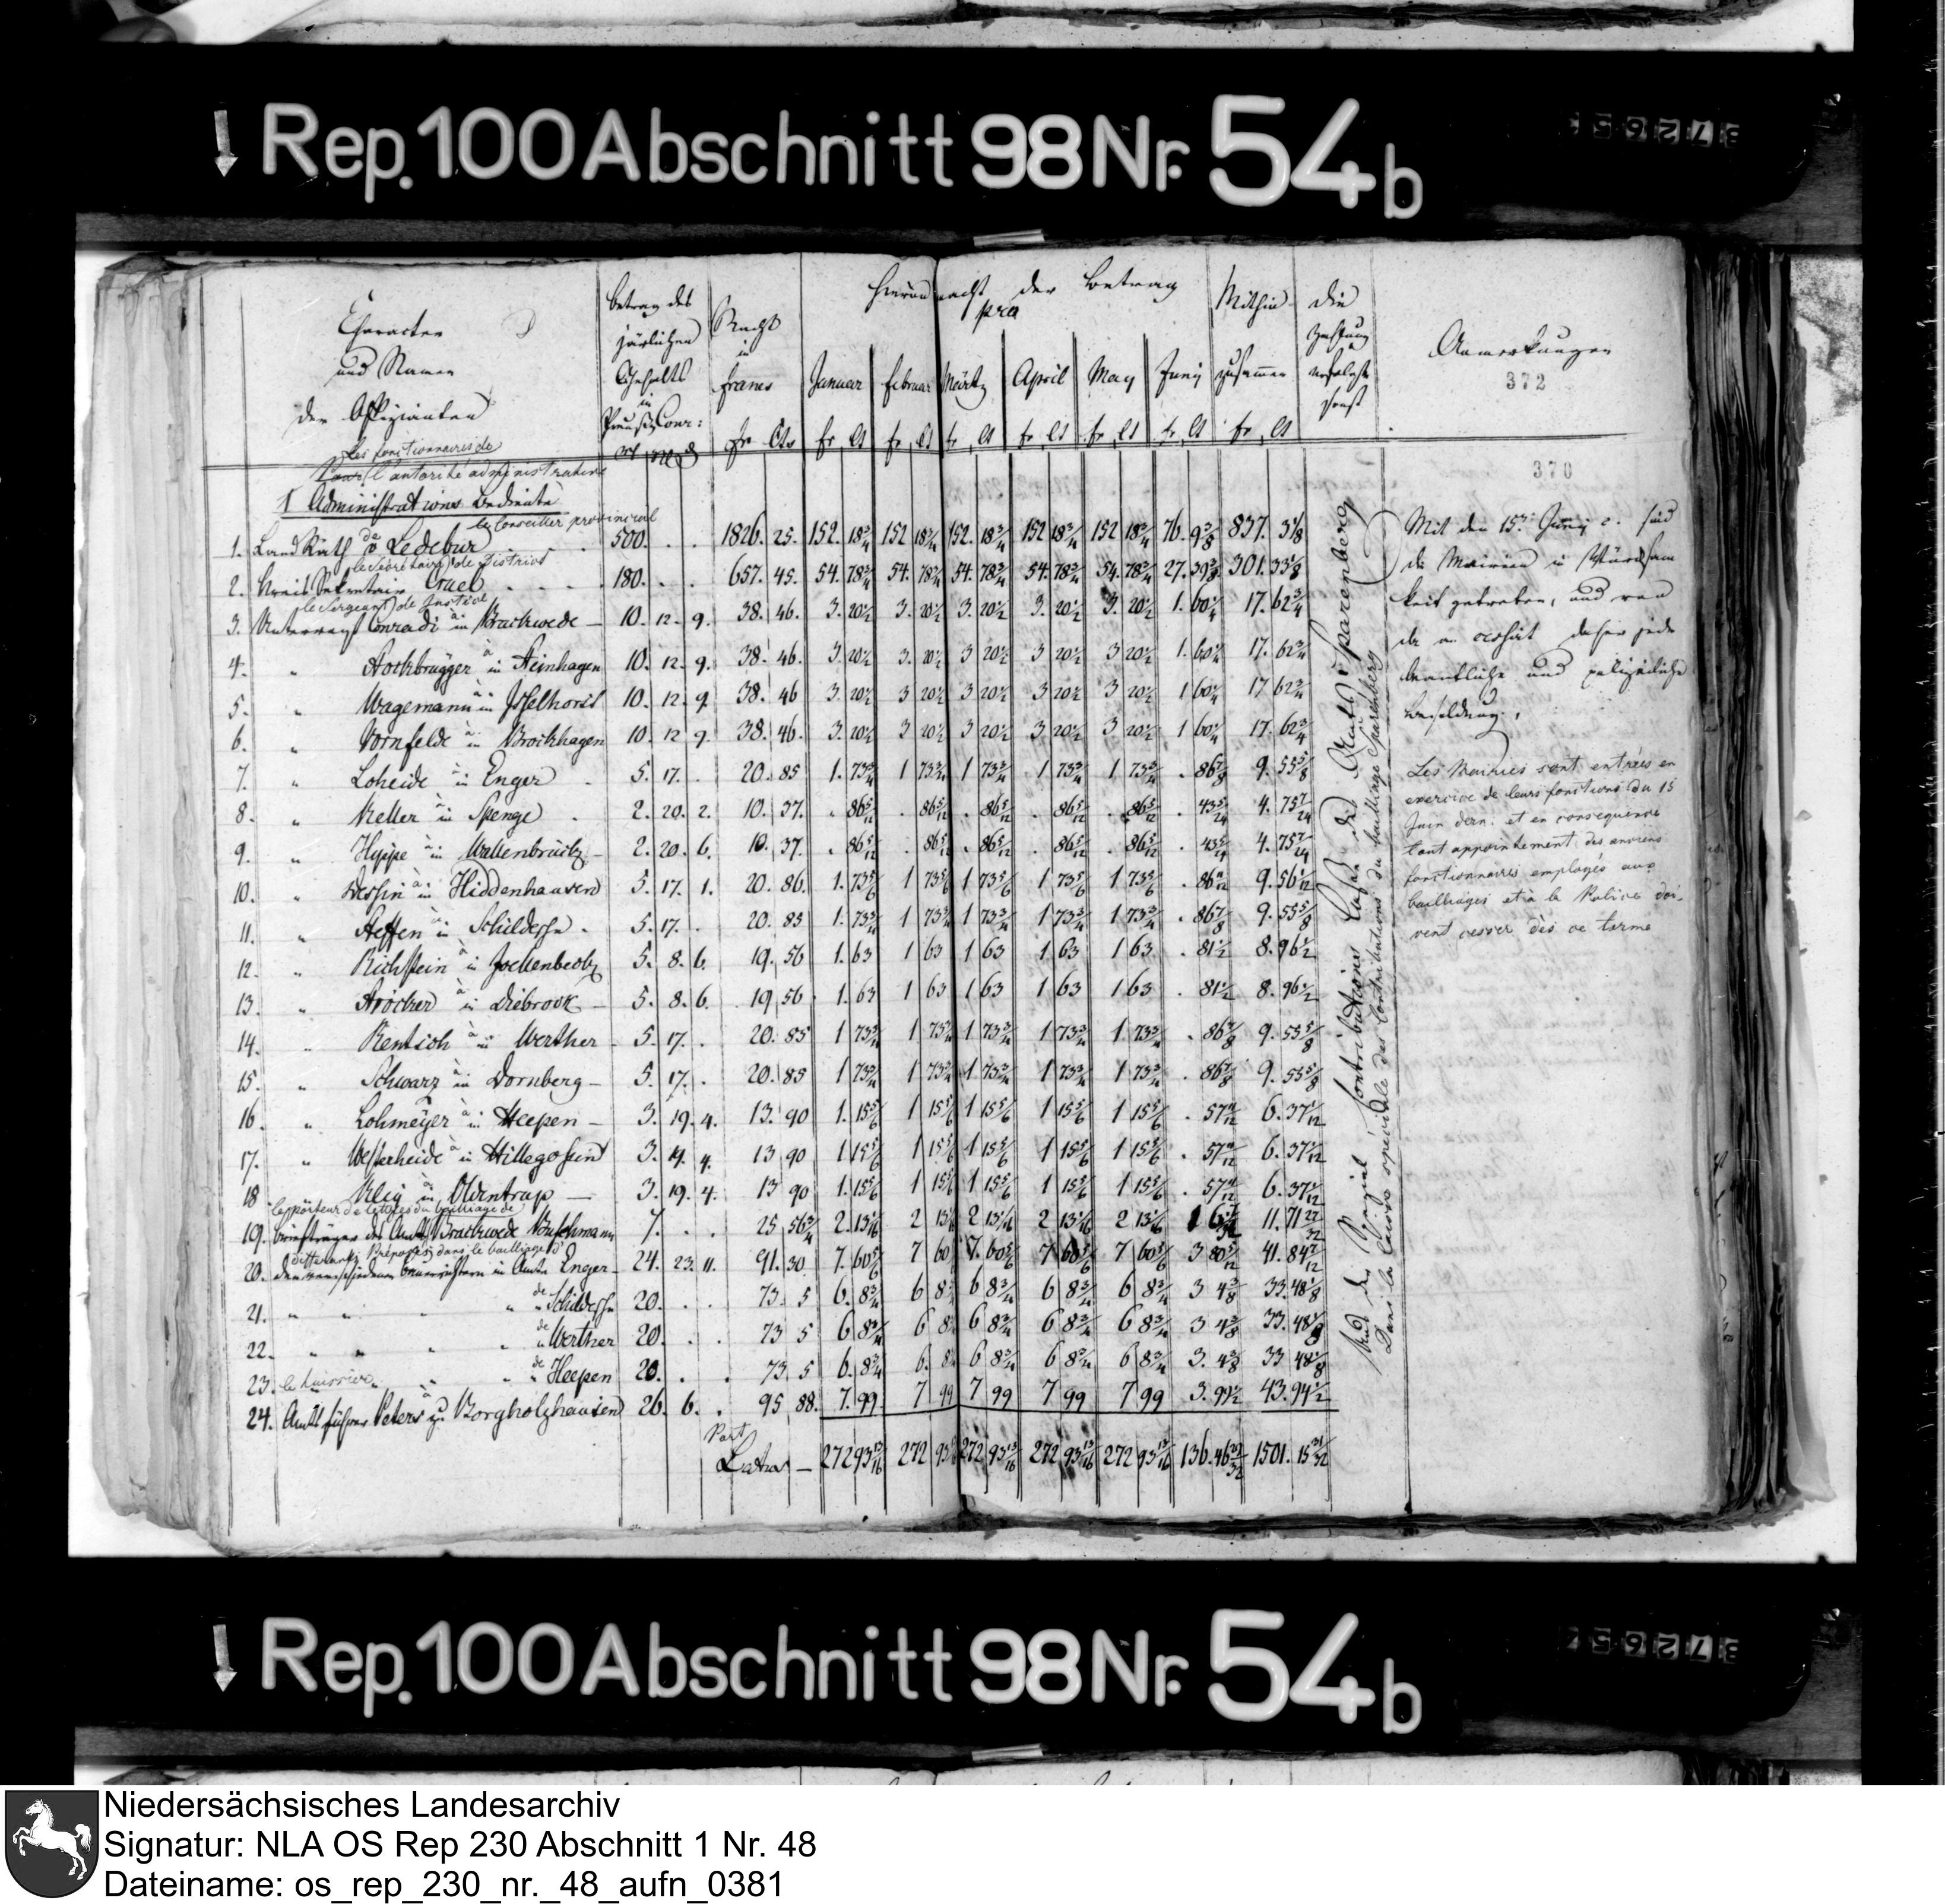 Rep. 100 Abschnitt 98 Nr. 54b
Character und Namen der Offizianten
Betrag des järlichen Gehalts in Preuß. Cour:
Macht in francs
fr Cts
Hiervon macht der Betrag pro
Januar Februar Märtz April May Juny
fr, Ct fr, Ct fr, Ct fr, Ct fr, Ct fr, Ct
Mithin zusammen
fr, Ct
die Zahlung erfolgte sonst
Anmerkungen
372
370
Les fonctionnaires de
l'autorité administrative
1 Administrations Bediente
le Conseiller provincial
1. Land Rath v Ledebur 500. 1826. 25. 152. 18¾ 152 18¾ 152. 18¾ 152 18¾ 152 18¾ 76. 9⅜ 837. 3⅛
le Secrétaire de District
2. Kreis Sekretair Cruel 180. 657. 45. 54. 78¾ 54. 78¾ 54. 78¾ 54. 78¾ 54. 78¾ 27. 39⅜ 301. 33⅛
le Sergeant de Justice
3. Untervogt Conradi à in Brackwede 10. 12. 9. 38. 46. 3. 20½ 3. 20½ 3. 20½ 3. 20½ 3. 20½ 1. 60¼ 17. 62¾
4. " à in Steinhagen 10. 12. 9. 38. 46. 3. 20½ 3. 20½ 3 20½ 3 20½ 3 20½ 1. 60¼ 17. 62¾
5. " Wagemann à in Isselhorst 10. 12. 9. 38. 46 3. 20½ 3 20½ 3 20½ 3 20½ 3 20½ 1 60¼ 17 62¾
6. " Vornfelde à in Brockhagen 10. 12 9. 38. 46. 3. 20½ 3 20½ 3 20½ 3 20½ 3 20½ 1 60¼ 17. 62¾
7. " Loheide à in Enger 5. 17. . 20. 85 1. 73¾ 1 73¾ 1 73¾ 1 73¾ 1 73¾ . 86⅞ 9. 55⅝
8. " Keller à in Spenge 2. 20. 2. 10. 37. . 86 5/12 . 86 5/12 . 86 5/12 . 86 5/12 . 86 5/12 . 43 5/24 4. 75 7/24
9. " Hyppe à in Wallenbrück 2. 20. 6. 10. 37. . 86 5/12 . 86 5/12 . 86 5/12 . 86 5/12 . 86 5/12 . 43 5/24 4. 75 7/24
10. " Dessin à in Hiddenhausen 5. 17. 1. 20. 86. 1. 73⅚ 1 73⅚ 1 73⅚ 1 73⅚ 1 73⅚ . 86 11/12 9. 56 1/12
11. " Steffen à in Schildesche 5. 17. . 20. 85 1. 73¾ 1 73¾ 1 73¾ 1 73¾ 1 73¾ . 86⅞ 9. 55⅝
12. " Richstein à in Jöllenbeck 5. 8. 6. 19. 56 1. 63 1 63 1 63 1 63 1 63 . 81½ 8. 96½
13. " à in Diebrock 5. 8. 6. 19 56 1. 63 1 63 1 63 1 63 1 63 . 81½ 8. 96½
14. " Rentsch à in Werther 5. 17. . 20. 85 1 73¾ 1 73¾ 1 73¾ 1 73¾ 1 73¾ . 86⅞ 9. 55⅝
15. " Schwarz à in Dornberg 5. 17. . 20. 85 1 73¾ 1 73¾ 1 73¾ 1 73¾ 1 73¾ . 86⅞ 9. 55⅝
16. " Lohmeyer à in Heepen 3. 19. 4. 13. 90 1. 15⅚ 1 15⅚ 1 15⅚ 1 15⅚ 1 15⅚ . 57 11/12 6. 37 1/12
17. " Westerheide à in Hillegossen 3. 19. 4. 13 90 1 15⅚ 1 15⅚ 1 15⅚ 1 15⅚ 1 15⅚ . 57 11/12 6. 37 1/12
18 Kley à in Oldentrup 3. 19. 4. 13 90 1. 15⅚ 1 15⅚ 1 15⅚ 1 15⅚ 1 15⅚ . 57 11/12 6. 37 1/12
le porteur de lettres du bailliage de
19. Briefträger des Amts Brackwede Buschmann 7. . . 25 56¾ 2. 13 1/16 2 13 1/16 2 13 1/16 2 13 1/16 2 13 1/16 11. 71 27/32
differents Préposés dans le bailliage d'
20. den verschiedenen in Amte Enger 24. 23. 11. 91. 30 7. 60⅚ 7 60 7. 60⅚ 7 60⅚ 7 60⅚ 3 80 5/12 41. 84 7/12
21. " " " " de Schildesche 20. . . 73. 5 6. 8¾ 6 8¾ 6 8¾ 6 8¾ 6 8¾ 3 4⅜ 33. 48⅛
22. " " " " de Werther 20. . . 73 5 6 8¾ 6 8¾ 6 8¾ 6 8¾ 6 8¾ 3 4⅜ 33. 48⅛
23. " " " de Heepen 20. . . 73 5 6. 8¾ 6. 8¾ 6 8¾ 6 8¾ 6 8¾ 3. 4⅜ 33 48⅛
le huissier
24. Amtsführer Peters à zu Borgholzhausen 26. 6. . 95 88. 7. 99 7 99 7 99 7 99 7 99 3. 99½ 43. 94½
Part
Latus 272 93 13/16 272 93 272 93 13/16 272 93 13/16 272 93 13/16 136. 46 29/32 1501. 15 31/32
Aus der Special Contributions Casse des Amts Sparenberg
Dans la Caisse spéciale des Contributions du bailliage Sparenberg
Mit den 15ten Juny c. sind
die Mairien in Würksam
keit getreten, und von
da an cessirt daher jede
beamtliche und polizeiliche
Besoldung.
Les Mairies sont entrées en
exercice de leurs fonctions du 15
Juin dern: et en consequence
tout appointement des anciens
fonctionnaires employés aux
bailliages et à la Police doi-
vent cesser dès ce terme
Rep. 100 Abschnitt 98 Nr. 54b
Niedersächsisches Landesarchiv
Signatur: NLA OS Rep 230 Abschnitt 1 Nr. 48
Dateiname: os_rep_230_nr._48_aufn_0381